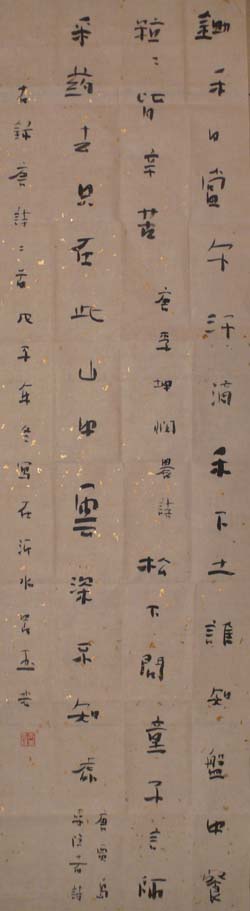 鋤禾日當午汗滴禾下土誰知盤中餐
粒〻皆辛苦 唐李坤憫農詩 松下問童子言師
采药去只在此山中雲深不知處
唐賈島
尋隱者詩
右錄唐詩二首戊子年冬寫在沂水